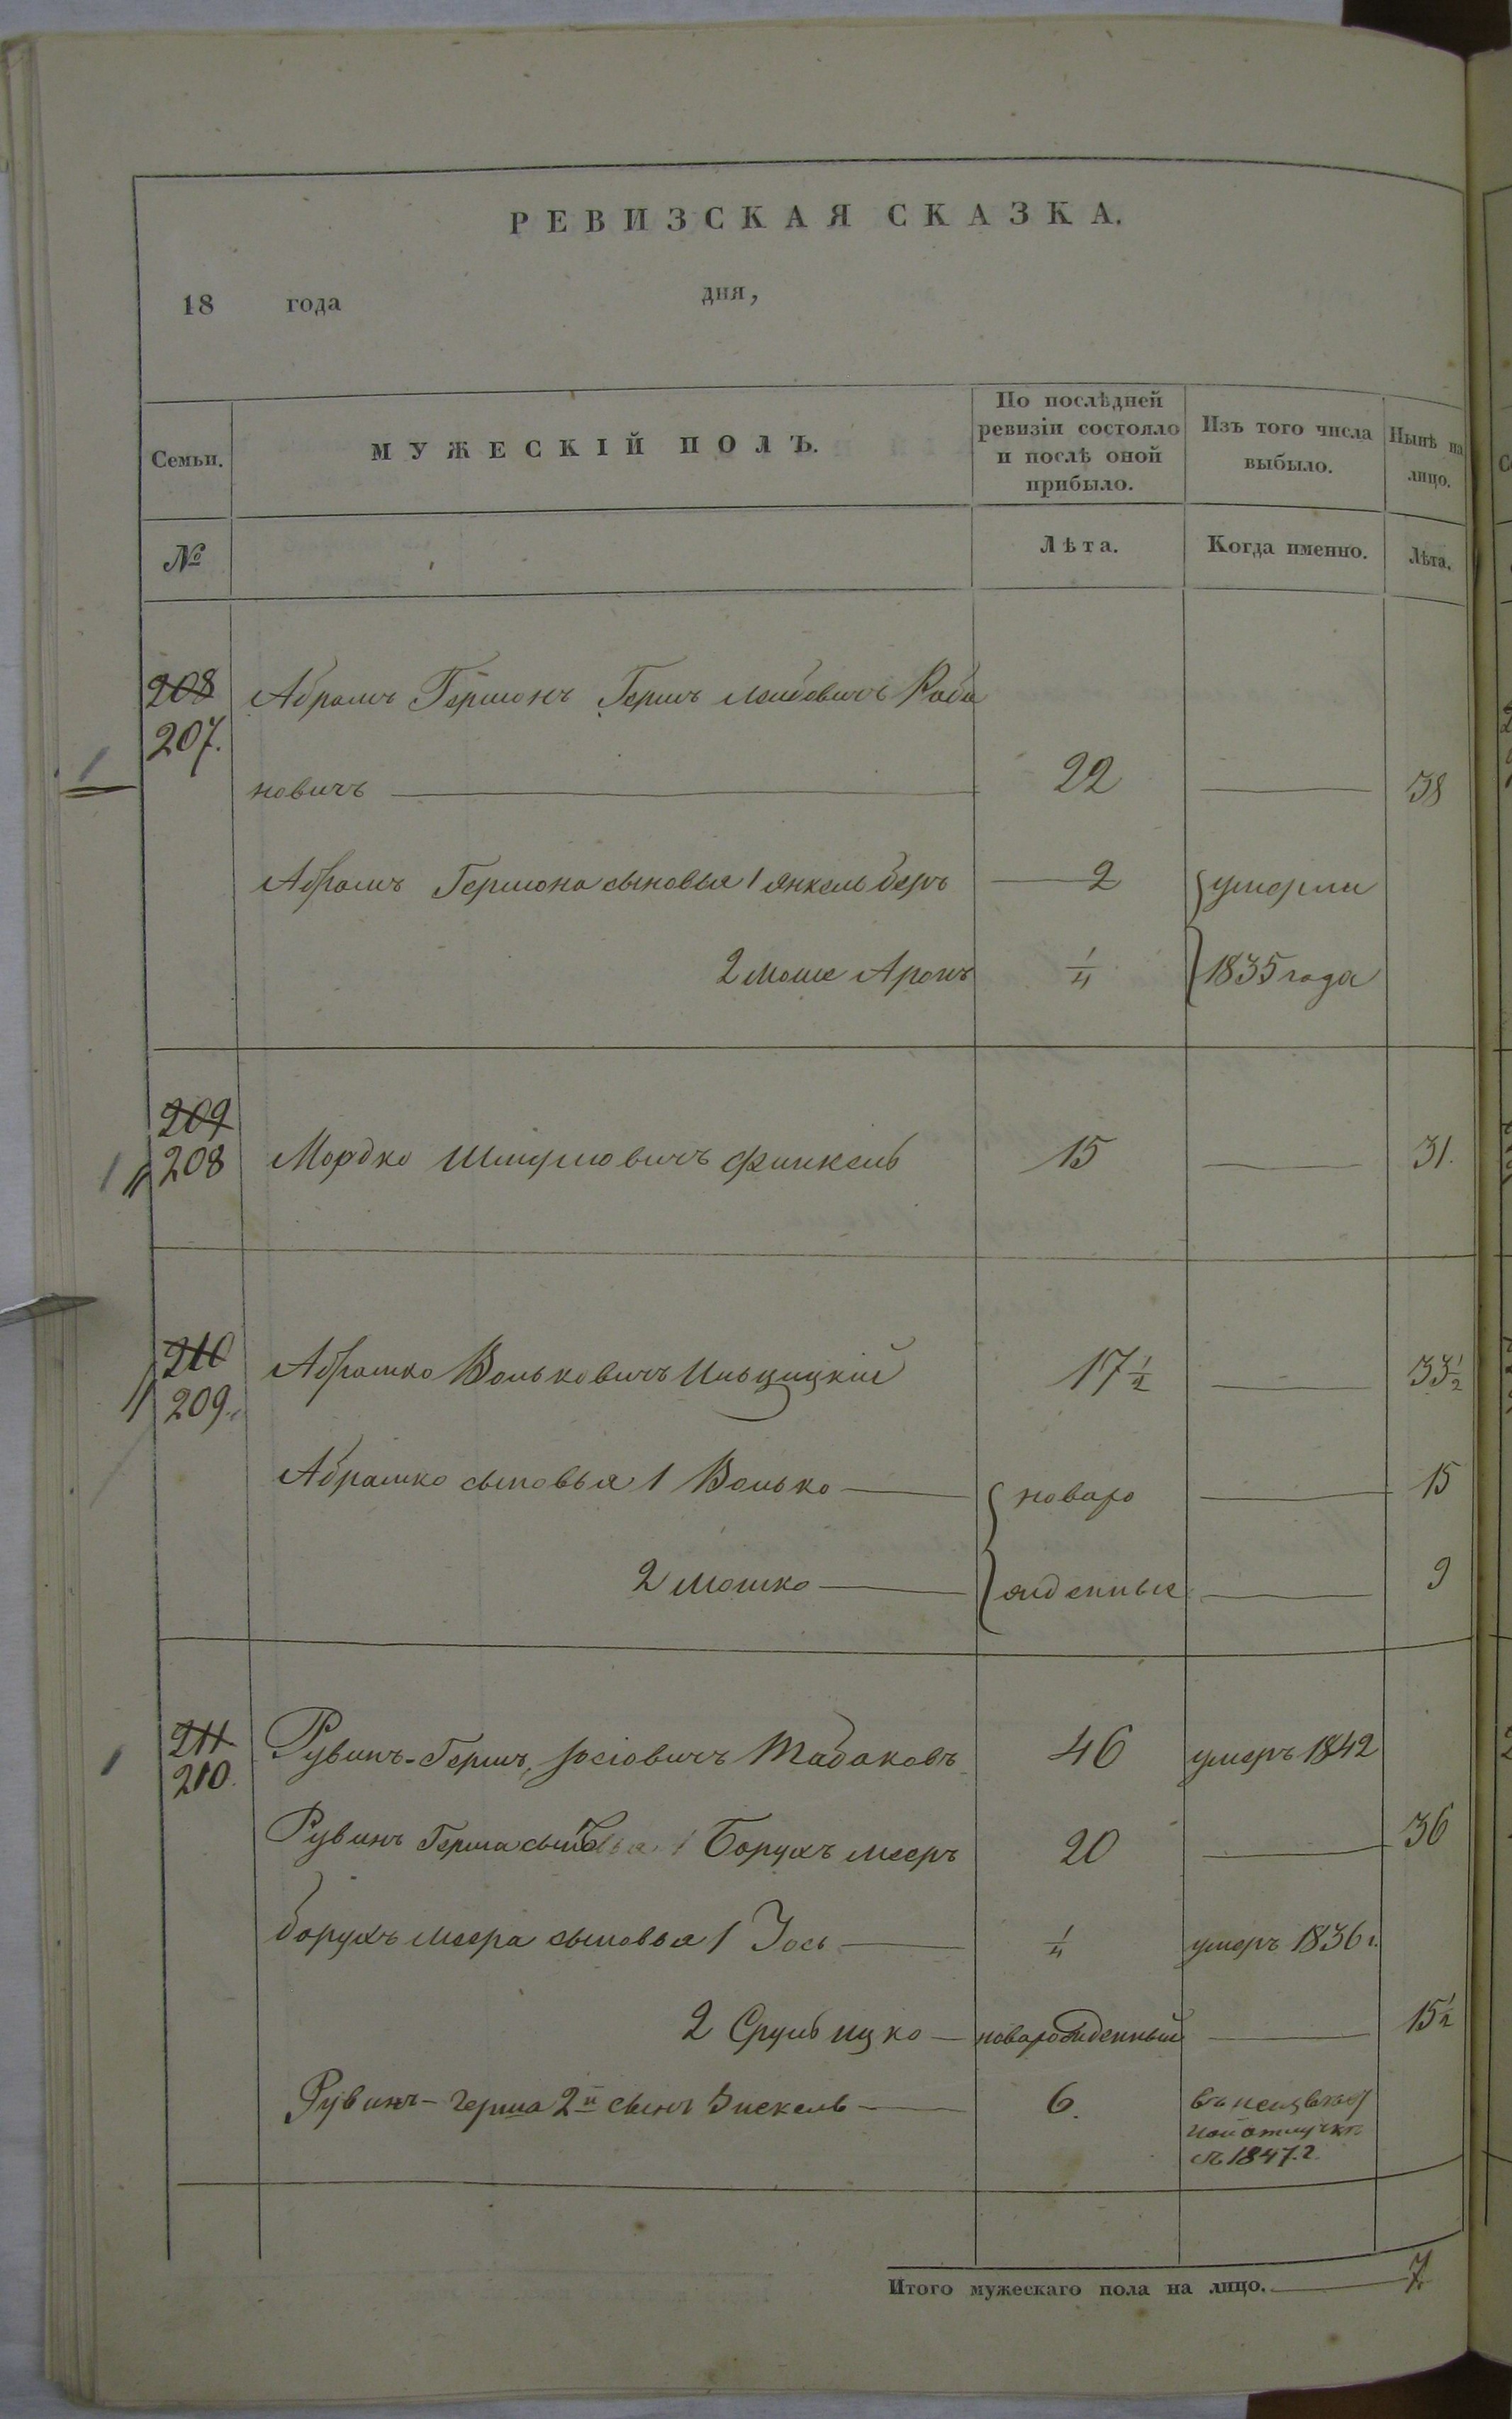 РЕВИЗСКАЯ СКАЗКА.
18 года дня,
Семьи. МУЖЕСКІЙ ПОЛЪ. По послѣдней ревизіи состояло и послѣ оной прибыло. Изъ того числа выбыло. Нынѣ на лицо.
№ Лѣта. Когда именно. Лѣта.
208 Абрамъ Гершонъ Гершъ Лейбовичъ Раби
207.
новичъ 22 38
Абрамъ Гершона сыновья 1 Янкель Беръ 2 умерли
2 Моше Аронъ 1/4 1835 года
209
208 Мордко Шмуйловичъ Финкель 15 31.
210 Абрамко Вольковичъ 17 1/2 33 1/2
209.
Абрамко сыновья 1 Волько новаро 15
2 Мошко жденные 9
211 Рувинъ-Гершъ Іосіовичъ Табаковъ 46 умеръ 1842
210.
Рувинъ Герша сыновья 1 Борухъ Мееръ 20 36
Борухъ Меера сыновья 1 Іось 1/4 умеръ 1836 г.
2 Сруль Ицко новарожденный 15 1/2
Рувинъ-Герша 2й сынъ Хискель 6. въ неизвѣст
ной отлучкѣ
съ 1847 г.
Итого мужескаго пола на лицо. 7